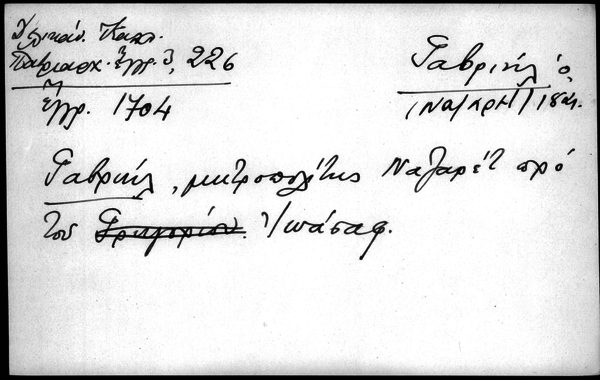 Δελικάν. Καλλ.
Πατριαρχ. Ἔγγρ. 3, 226
Ἔγγρ. 1704
Γαβριὴλ ὁ
(Ναζαρὲτ) 18 αἰ.
Γαβριήλ, μητροπολίτης Ναζαρέτ πρό
του Γρηγορίου. Ἰωάσαφ.